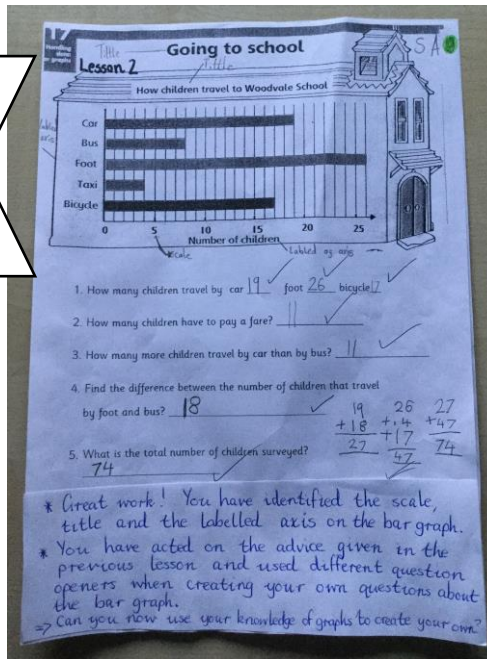 17
Handling data
bar graphs
Title
Going to school
S A
Lesson 2
Title
How children travel to Woodvale School
Car
Bus
Foot
Taxi
Bicycle
0 5 10 15 20 25
Number of children
scale
1. How many children travel by car 19 foot 26 bicycle 17
2. How many children have to pay a fare? 11
3. How many more children travel by car than by bus? 11
4. Find the difference between the number of children that travel
by foot and bus? 18
5. What is the total number of children surveyed?
74
19
+ 18
27
26
+ 4
+17
47
27
+47
74
* Great work! You have identified the scale,
title and the labelled axis on the bar graph.
* You have acted on the advice given in the
previous lesson and used different question
openers when creating your own questions about
the bar graph.
=> Can you now use your knowledge of graphs to create your own?